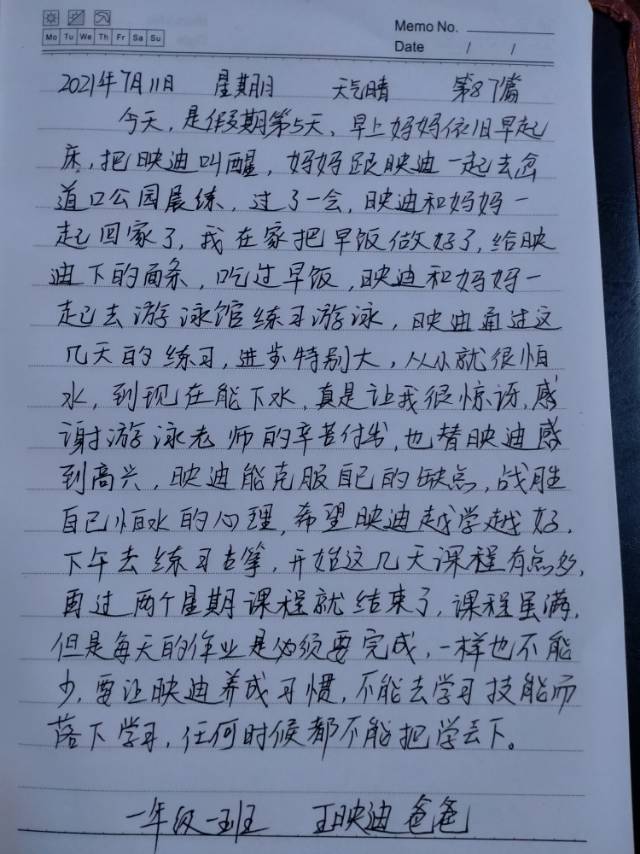 Mo Tu We Th Fr Sa Su
Memo No.
Date / /
2021年7月11日 星期日 天气晴 第87篇
今天,是假期第5天、早上妈妈依旧早起
床,把映迪叫醒,妈妈跟映迪一起去岔
道口公园晨练,过了一会,映迪和妈妈一
起回家了,我在家把早饭做好了,给映
迪下的面条,吃过早饭,映迪和妈妈一
起去游泳馆练习游泳,映迪通过这
几天的练习,进步特别大,从小就很怕
水,到现在能下水,真是让我很惊讶,感
谢游泳老师的辛苦付出,也替映迪感
到高兴,映迪能克服自己的缺点,战胜
自己怕水的心理,希望映迪越学越好.
下午去练习古筝,开始这几天课程有点多,
再过两个星期课程就结束了,课程虽满,
但是每天的作业是必须要完成,一样也不能
少,要让映迪养成习惯,不能去学习技能而
落下学习,任何时候都不能把学丢下。
一年级一班 王映迪 爸爸